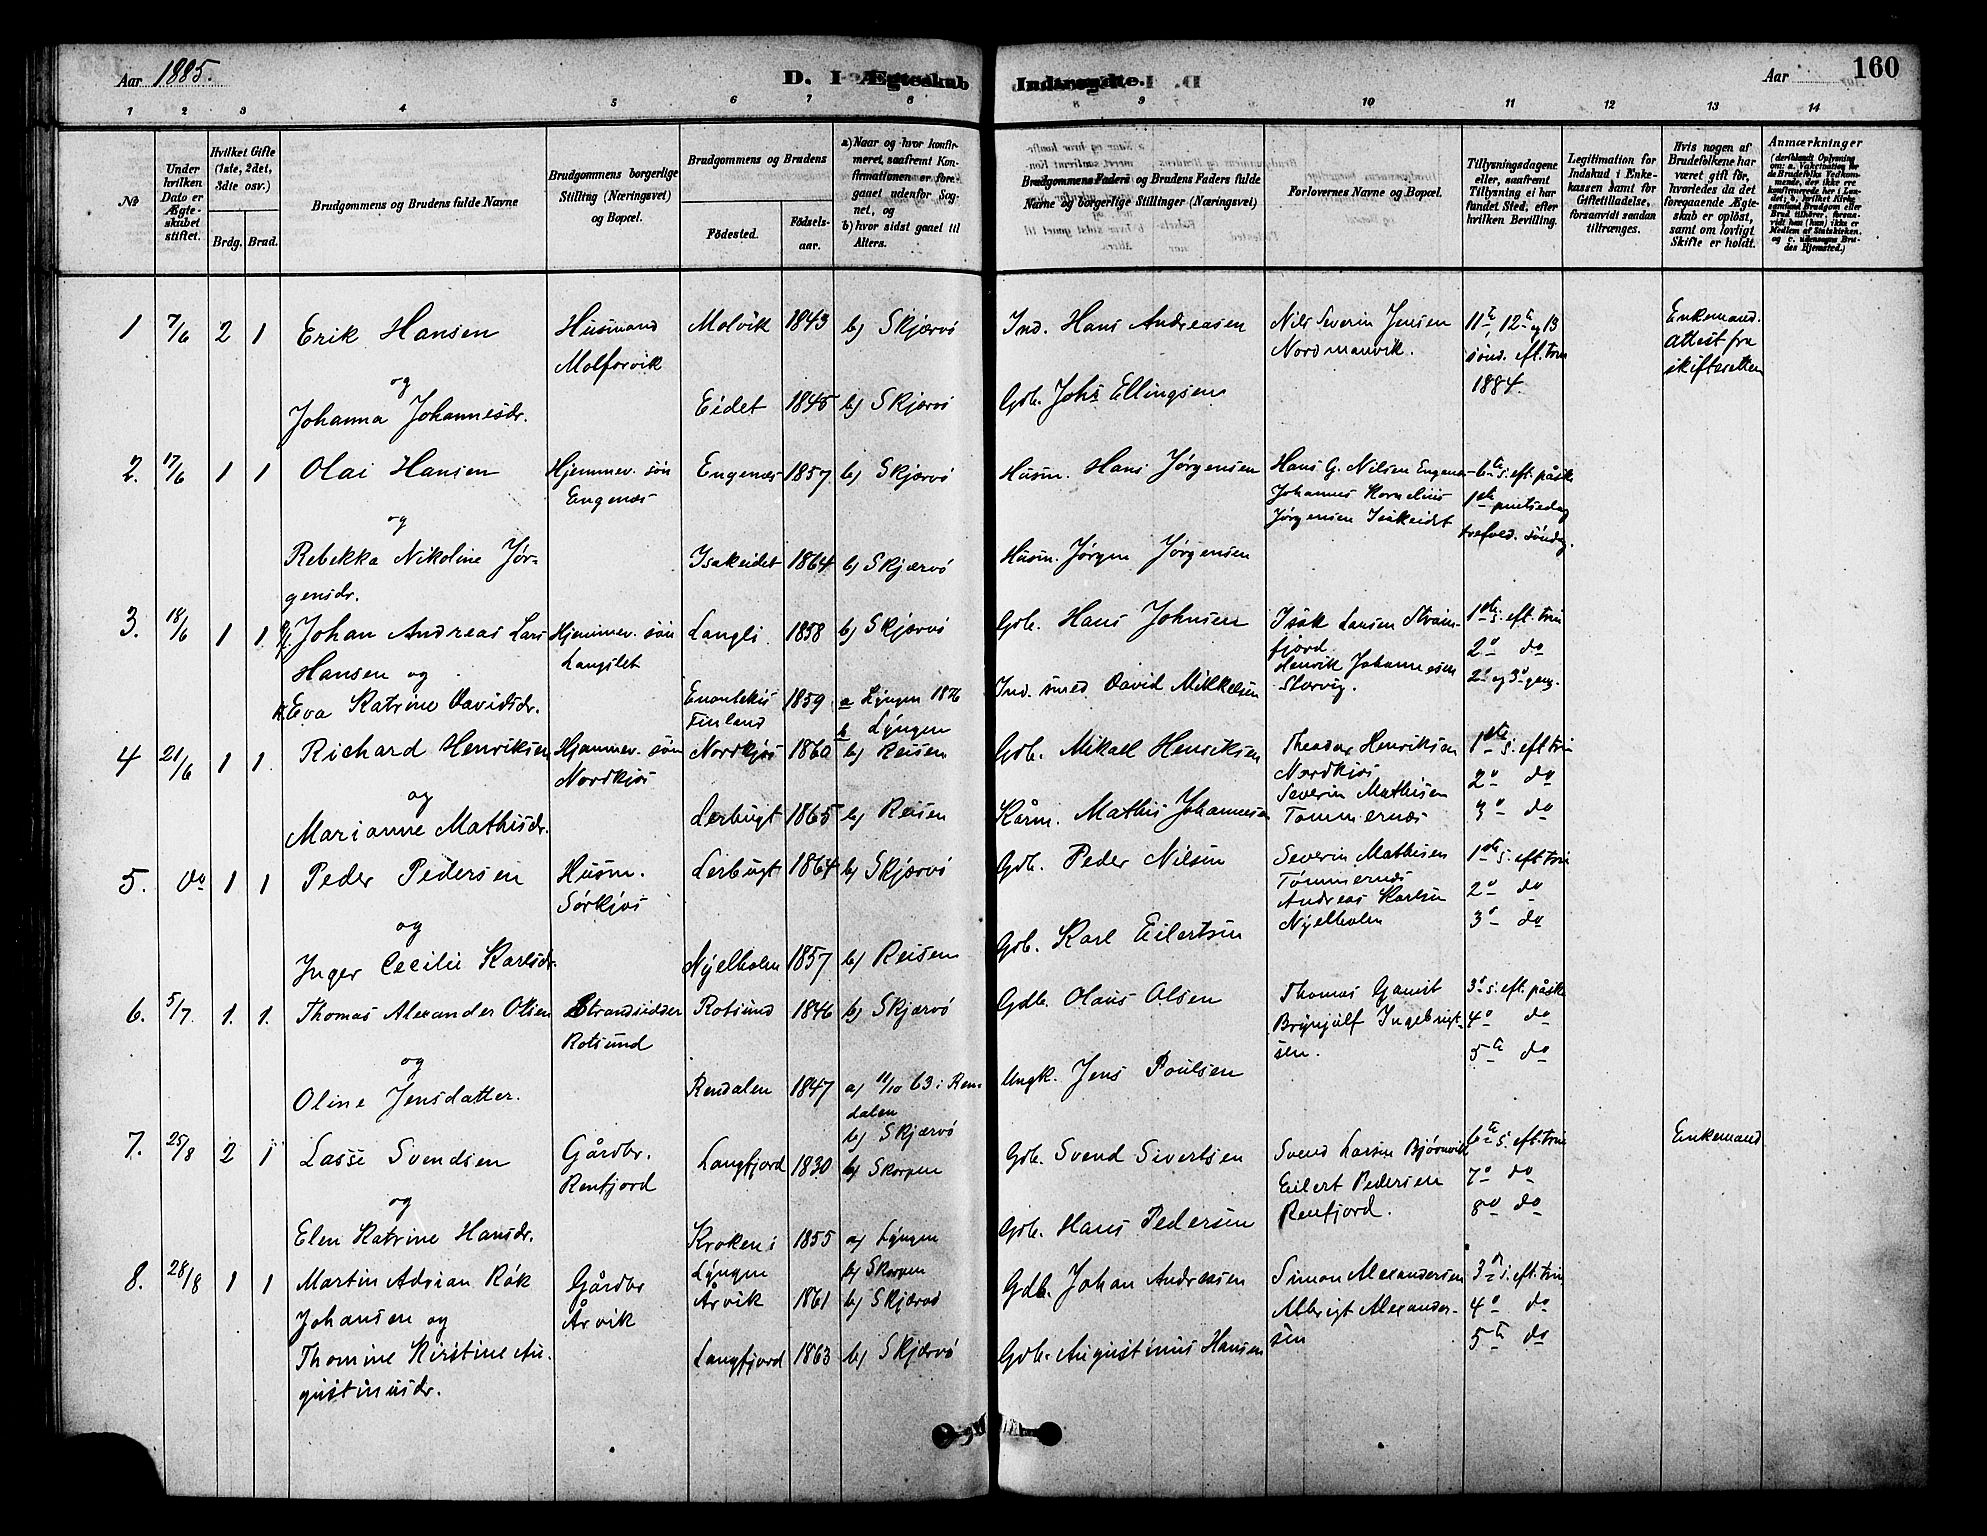 Aar 1885.
D. I Ægteskab Indtraadte.
Aar
160
1 2 3 4 5 6 7 8 9 10 11 12 13 14
No
Under hvilken Dato er Ægteskabet stiftet.
Hvilket Gifte (1ste, 2det, 3die osv.)
Brdg. Brud.
Brudgommens og Brudens fulde Navne
Brudgommens borgerlige Stilling (Næringsvei) og Bopæl.
Brudgommens og Brudens
Fødested. Fødselsaar.
a) Naar og hvor konfirmeret, saafremt Konfirmationen er foregaaet udenfor Sognet, og
b) hvor sidst gaaet til Alters.
Brudgommens Faders og Brudens Faders fulde Navne og borgerlige Stillinger (Næringsvei)
Forlovernes Navne og Bopæl.
Tillysningsdagene eller, saafremt Tillysning ei har fundet Sted, efter hvilken Bevilling.
Legitimation for Indskud i Enkekassen samt for Giftetilladelse, forsaavidt saadan tiltrænges.
Hvis nogen af Brudefolkene har været gift før, hvorledes da det foregaaende Ægteskab er opløst, samt om lovligt Skifte er holdt.
Anmærkninger
1 7/6 2 1 Erik Hansen Husmand Molforvik Molvik 1843 b) Skjærvö Ind. Hans Andreasen Nils Severin Jensen Nordmanvik. 11te, 12te og 13 sönd. eft. trin 1884. Enkemand. attest fra skifteretten
og
Johanna Johannesdr. Eidet 1845 b) Skjærvö Gdb. Johs Ellingsen
2. 17/6 1 1 Olai Hansen Hjemmev. sön Engenæs Engenæs 1857 b) Skjærvö Husm. Hans Jørgensen Hans G. Nilsen Engenæs Johannes Kornelius Jørgensen Isakeidet 6te s. eft. påske 1ste pintsedag trefold. söndag.
og
Rebekka Nikoline Jørgensdr. Isakeidet 1864 b) Skjærvö Husm. Jørgen Jørgensen
3. 18/6 1 1. Johan Andreas Lars Hansen og Hjemmev. sön Langslet Langsli 1858 b) Skjærvö Gdb. Hans Johnsen Isak Larsen Straumfjord Henrik Johannessen Storvig. 1ste s. eft. trin 2o do 2o og 3o gang.
Eva Katrine Davidsdr. Enontekis Finland 1859 a Lyngen 1876 b Lyngen Ind. smed David Mikkelsen
4 21/6 1 1. Richard Henriksen Hjemmev. sön Nordkjos Nordkjos 1860 b) Reisen Gdb. Mikael Henriksen Theodor Henriksen Nordkjos Severin Mathisen Tömmernæs 1ste s. eft trin 2o do 3o do
og
Marianne Mathisdr. Lerbugt 1865 b) Reisen Kårm. Mathis Johannesen
5. do 1 1 Peder Pedersen Husm. Sörkjos Lerbugt 1864 b) Skjærvö Gdb. Peder Nilsen Severin Mathisen Tømmernæs Andreas Karlsen Nyelholm 1ste s. eft trin 2o do 3o do
og
Inger Cecilie Karlsdr. Nyelholm 1857 b) Reisen Gdb. Karl Eilertsen
6. 5/7. 1. 1. Thomas Alexander Olsen Strandsidder Rotsund Rotsund 1846 b) Skjærvö Gdb. Olaus Olsen Thomas Gamst Brynjulf Ingebrigtsen. 3o s. eft. påske 4o do 5te do
og
Oline Jensdatter. Rendalen 1847 a) 11/10 63 i Rendalen b) Skjærvö Ungk. Jens Poulsen
7. 25/8 2 1 Lasse Svendsen Gårdbr. Renfjord Langfjord 1830 b) Skorpen Gdb. Svend Sivertsen Svend Larsen Bjørnvik Eilert Pedersen Renfjord. 6te s. eft. trin 7o do 8o do Enkemand
og
Elen Katrine Hansdr. Kroken i Lyngen 1855 a) Lyngen b) Skorpen Gdb. Hans Pedersen
8. 28/8 1 1 Martin Adrian Røk Johansen og Gårdbr Årvik Årvik 1861 b) Skjærvö Gdb. Johan Andreasen Simon Alexandersen Albrigt Alexandersen 3o s. eft. trin 4o do 5te do
Thomine Kirstine Augustinusdr. Langfjord 1863 b) Skjærvö Gdb. Augustinus Hansen